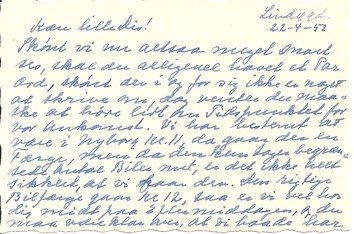 Lindøgd.
22-4-52
Kære lille Dis!
Skønt vi nu altsaa meget snart
ses, skal du alligevel have et Par
Ord, skønt der i og for sig ikke er noget
at skrive om, dog venter du maa-
ske at høre lidt om Tidspunktet for
vor Ankomst. Vi har bestemt at
være i Nyborg Kl. 11, da gaar der en
Færge, men da den kun tager begræn-
sede Antal Biler med, er det ikke helt
sikkert, at vi faar den. Den rigtige
Bilfærge gaar Kl. 12, saa er vi vel hos
dig midt paa Eftermiddagen, og du
maa være klar over, at vi baade har